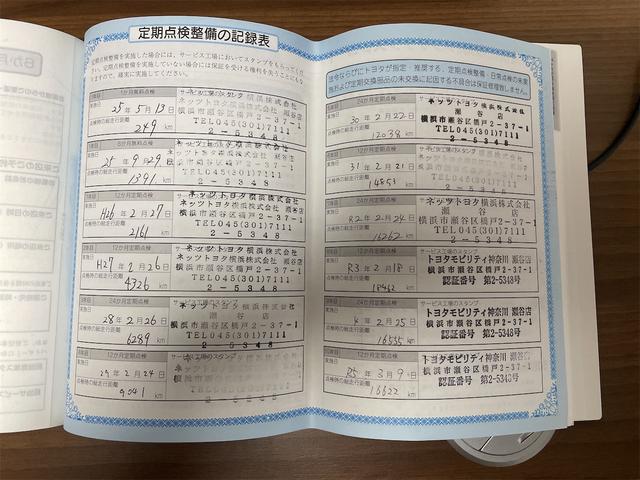 定期点検整備の記録表
定期点検整備を実施した場合には、サービス工場においてスタンプをもらってください。
定期点検整備を実施していない場合には保証を受ける権利を失うことにもなりますので、確実に実施してください。
1か月無料点検
実施日
25年5月13日
点検時の総走行距離
249 km
サービス工場のスタンプ
ネッツトヨタ横浜株式会社 瀬谷店
横浜市瀬谷区橋戸2-37-1
TEL045(301)7111
2-5348
6か月無料点検
実施日
25年9月29日
点検時の総走行距離
1391 km
ネッツトヨタ横浜株式会社 瀬谷店
横浜市瀬谷区橋戸2-37-1
TEL045(301)7111
2-5348
12か月定期点検
実施日
H26年2月27日
点検時の総走行距離
2161 km
ネッツトヨタ横浜株式会社 瀬谷店
横浜市瀬谷区橋戸2-37-1
TEL045(301)7111
2-5348
12か月定期点検
実施日
H27年2月26日
点検時の総走行距離
4326 km
ネッツトヨタ横浜株式会社 瀬谷店
横浜市瀬谷区橋戸2-37-1
TEL045(301)7111
2-5348
24か月定期点検
実施日
28年2月26日
点検時の総走行距離
6289 km
サービス工場のスタンプ
ネッツトヨタ横浜株式会社
瀬谷店
横浜市瀬谷区橋戸2-37-1
TEL045(301)7111
2-5348
12か月定期点検
実施日
29年2月24日
点検時の総走行距離
9041 km
サービス工場のスタンプ
法令ならびにトヨタが指定・推奨する、定期点検整備・日常点検の未実施および定期交換部品の未交換に起因する不具合は保証修理致しません。
24か月定期点検
実施日
30年2月22日
点検時の総走行距離
12038 km
ネッツトヨタ横浜株式会社
瀬谷店
横浜市瀬谷区橋戸2-37-1
TEL045(301)7111
2-5348
12か月定期点検
実施日
31年2月21日
点検時の総走行距離
14853 km
横浜市瀬谷区橋戸2-37-1
TEL045(301)7111
2-5348
24か月定期点検
実施日
R2年2月24日
点検時の総走行距離
16262 km
ネッツトヨタ横浜株式会社
瀬谷店
横浜市瀬谷区橋戸2-37-1
TEL045(301)7111
2-5348
12か月定期点検
実施日
R3年2月18日
点検時の総走行距離
km
サービス工場のスタンプ
トヨタモビリティ神奈川 瀬谷店
横浜市瀬谷区橋戸2-37-1
認証番号 第2-5348号
24か月定期点検
実施日
4年2月25日
点検時の総走行距離
16555 km
サービス工場のスタンプ
トヨタモビリティ神奈川 瀬谷店
横浜市瀬谷区橋戸2-37-1
認証番号 第2-5348号
12か月定期点検
実施日
R5年3月9日
点検時の総走行距離
16622 km
トヨタモビリティ神奈川 瀬谷店
横浜市瀬谷区橋戸2-37-1
認証番号 第2-5348号